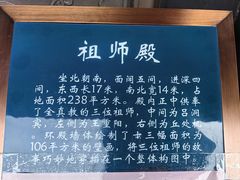 祖师殿
坐北朝南，面阔五间，进深四
间，东西长17米，南北宽14米，占
地面积238平方米。殿内正中供奉
了全真教的三位祖师，中间为吕洞
宾，左侧为王重阳，右侧为丘处
机。环殿墙体绘制了廿三幅面积为
106平方米的壁画，将三位祖师的故
事巧妙地穿插在一个整体构图中。